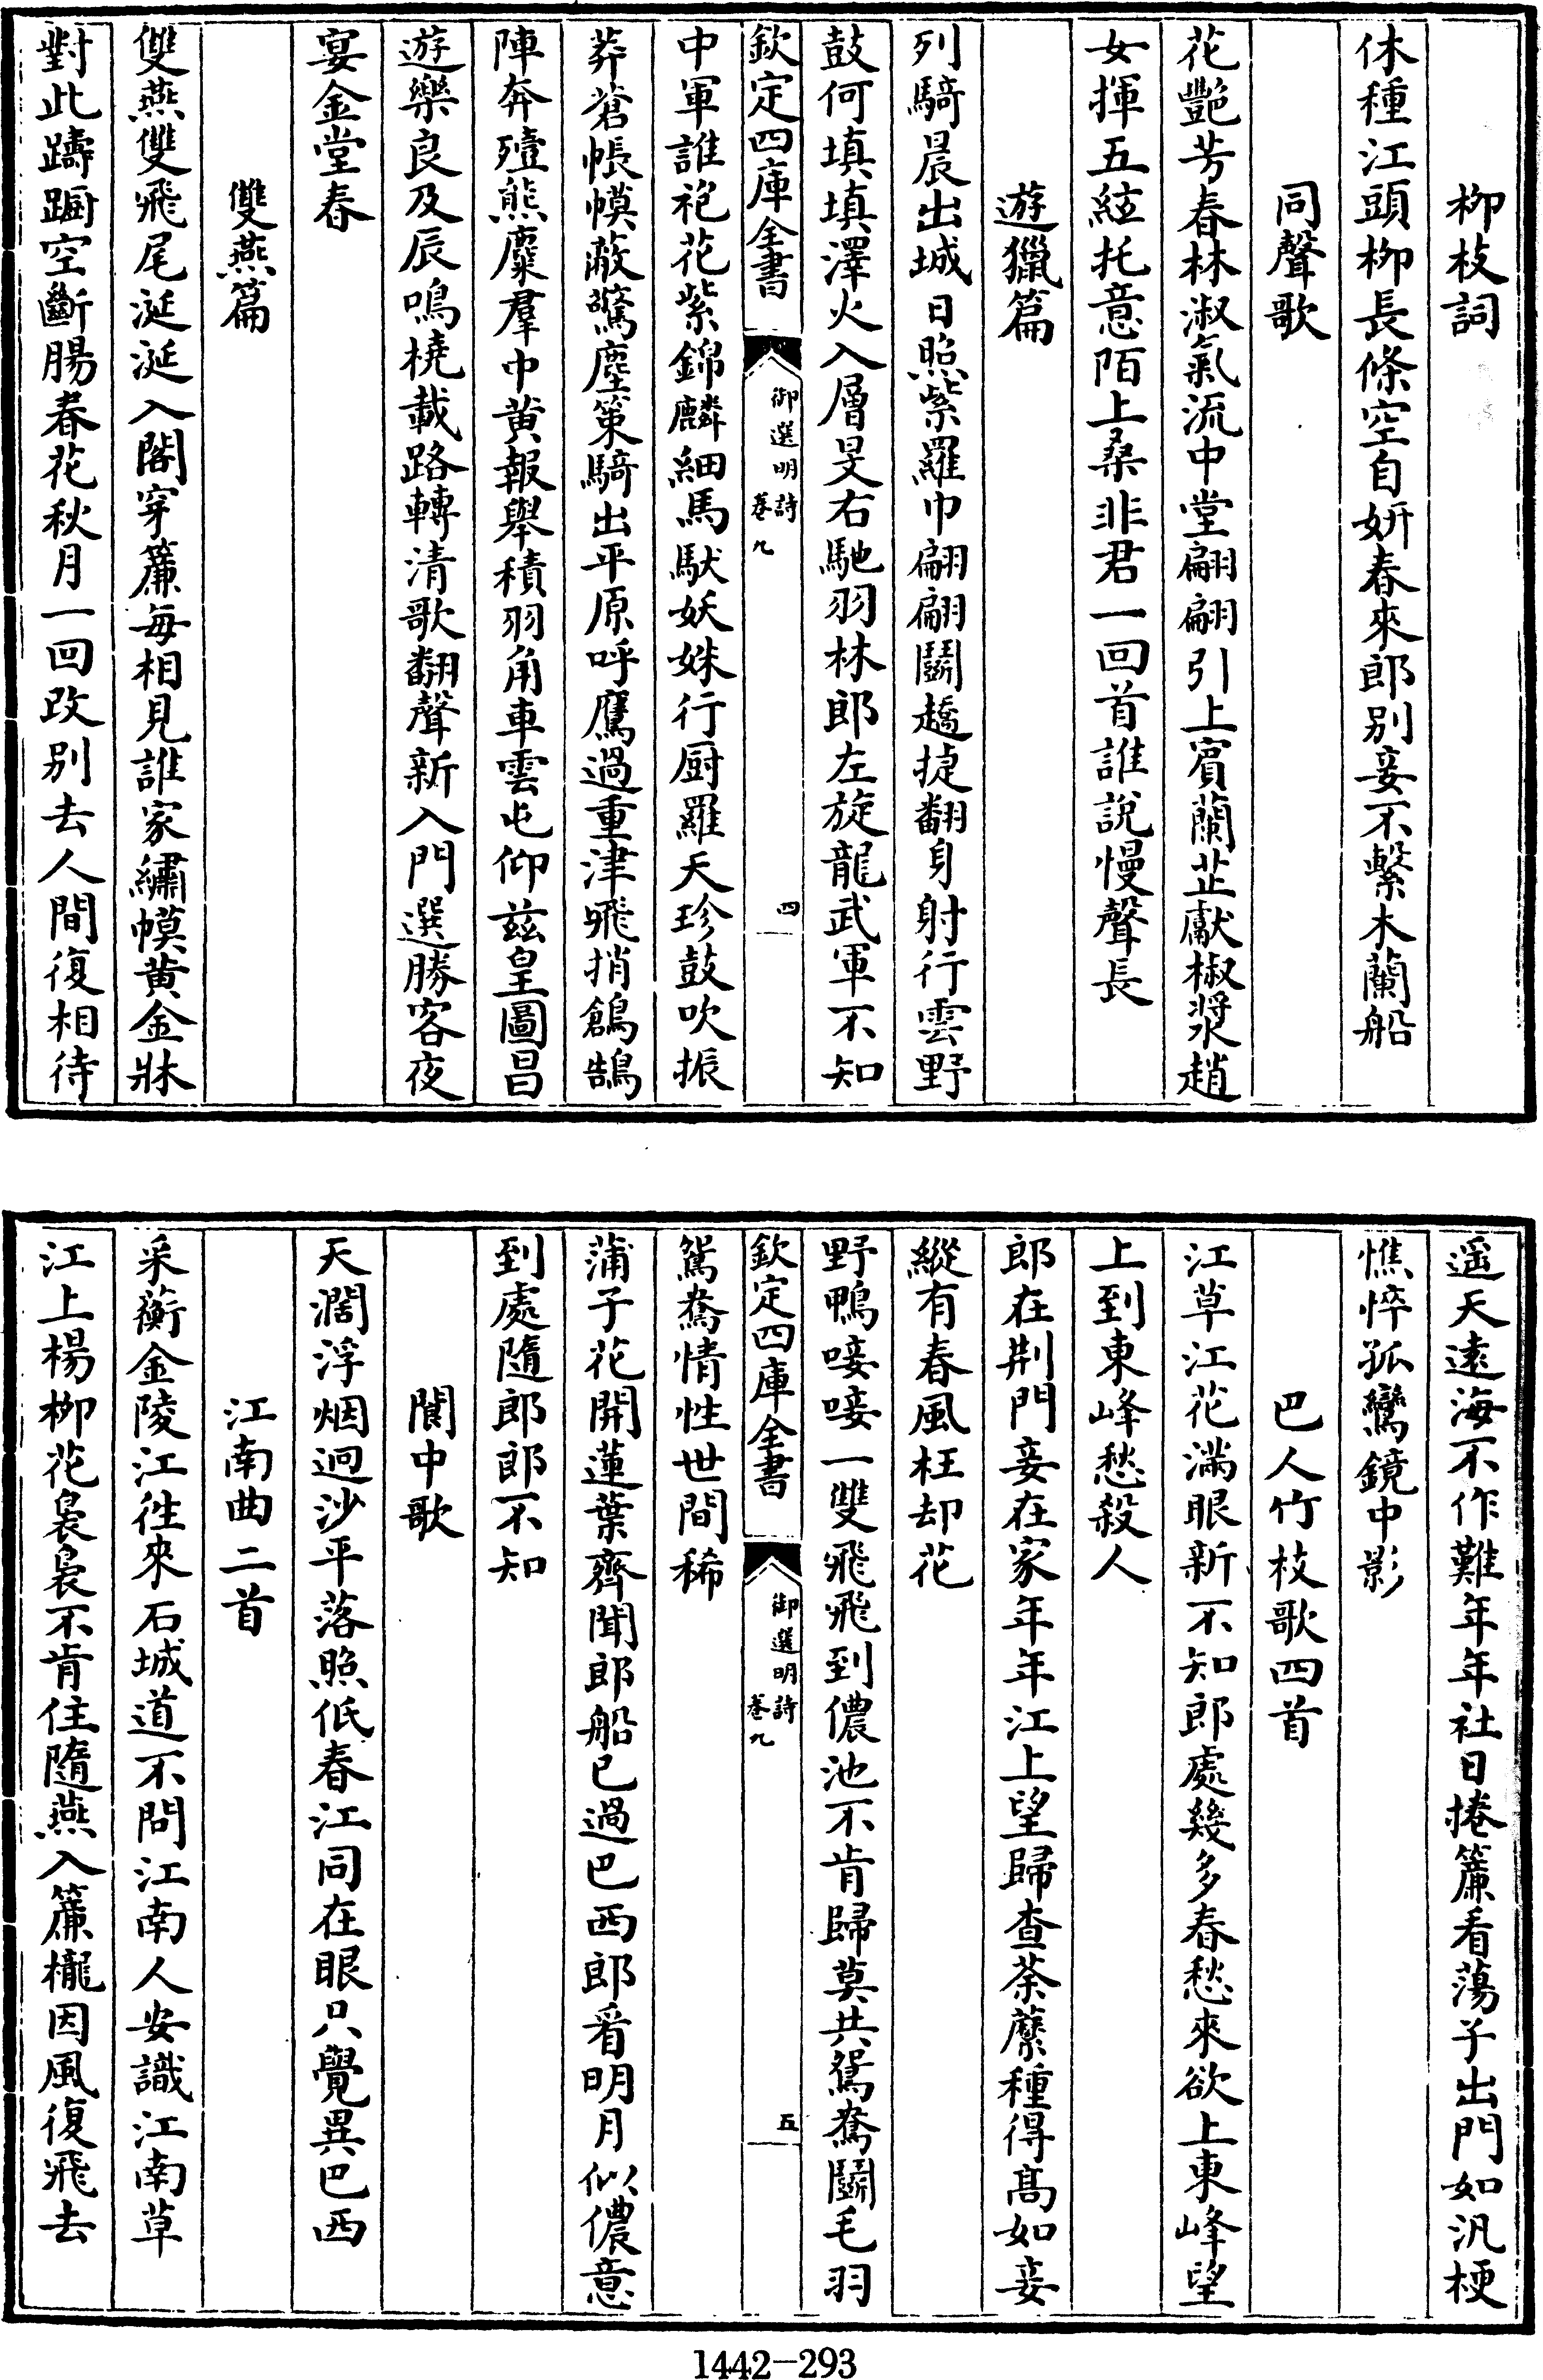 柳枝詞
休種江頭柳長條空自妍春來郎别妾不繫木蘭船
同聲歌
花艷芳春林淑氣流中堂翩翩引上賓蘭芷獻椒漿趙
女揮五絃托意陌上桑非君一回首誰說慢聲長
遊獵篇
列騎晨出城日照紫羅巾翩翩鬭趫捷翻身射行雲野
鼓何填填澤火入層旻右馳羽林郎左旋龍武軍不知
欽定四庫全書
御選明詩
卷九
四
中軍誰袍花紫錦麟細馬馱妖姝行厨羅天珍鼓吹振
莽蒼帳幙蔽驚塵策騎出平原呼鷹過重津飛捎鶬鵠
陣奔殪熊麋羣中黄報舉積羽角車雲屯仰兹皇圖昌
遊樂良及辰鳴橈載路轉清歌翻聲新入門選勝客夜
宴金堂春
雙燕篇
雙燕雙飛尾涎涎入閣穿簾每相見誰家繡幙黄金牀
對此躊蹰空斷腸春花秋月一回改别去人間復相待
遥天遠海不作難年年社日捲簾看蕩子出門如汎梗
憔悴孤鸞鏡中影
巴人竹枝歌四首
江草江花滿眼新不知郎處幾多春愁來欲上東峰望
上到東峰愁殺人
郎在荆門妾在家年年江上望歸查荼蘼種得髙如妾
縱有春風枉却花
野鴨唼唼一雙飛飛到儂池不肯歸莫共鴛鴦鬭毛羽
欽定四庫全書
御選明詩
卷九
五
鴛鴦情性世間稀
蒲子花開蓮葉齊聞郎船已過巴西郎看明月似儂意
到處隨郎郎不知
閬中歌
天濶浮烟迥沙平落照低春江同在眼只覺異巴西
江南曲二首
采蘅金陵江徃來石城道不問江南人安識江南草
江上楊柳花裊裊不肯住隨燕入簾櫳因風復飛去
1442-293